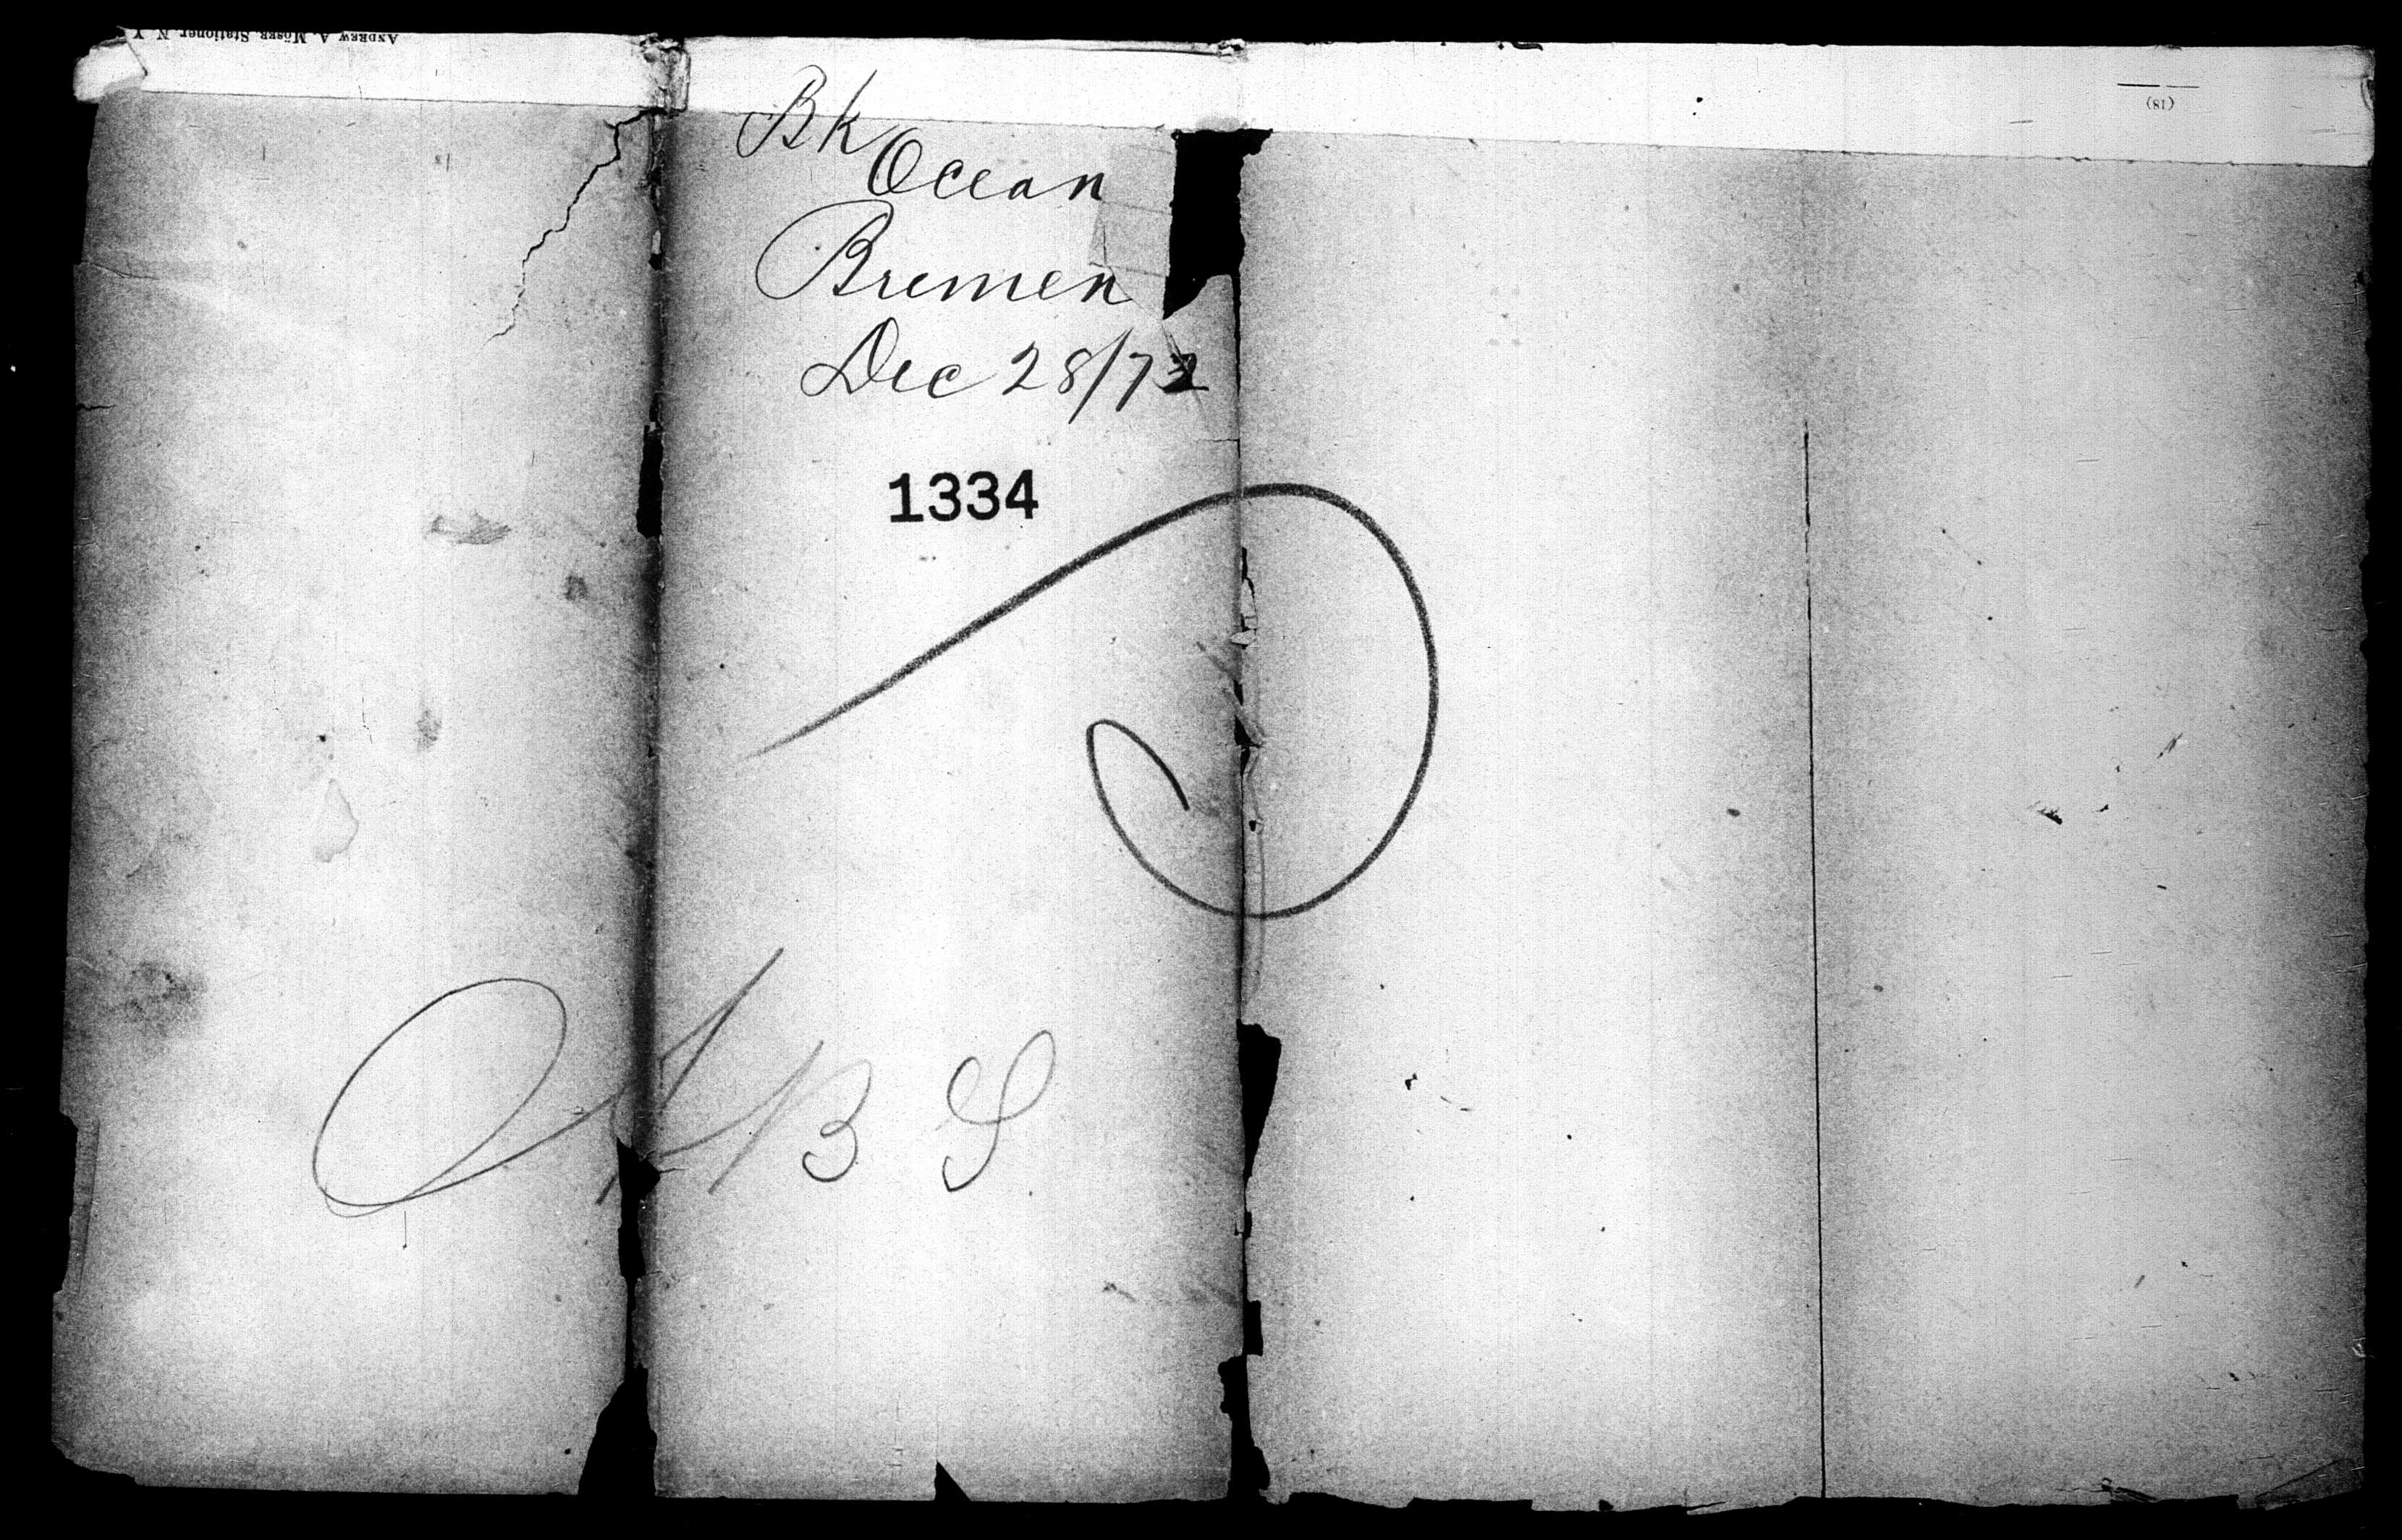 ANDREW A. MÖSER Stationer N.Y.
(81)
Bk
Ocean
Bremen
Dec 28/72
1334